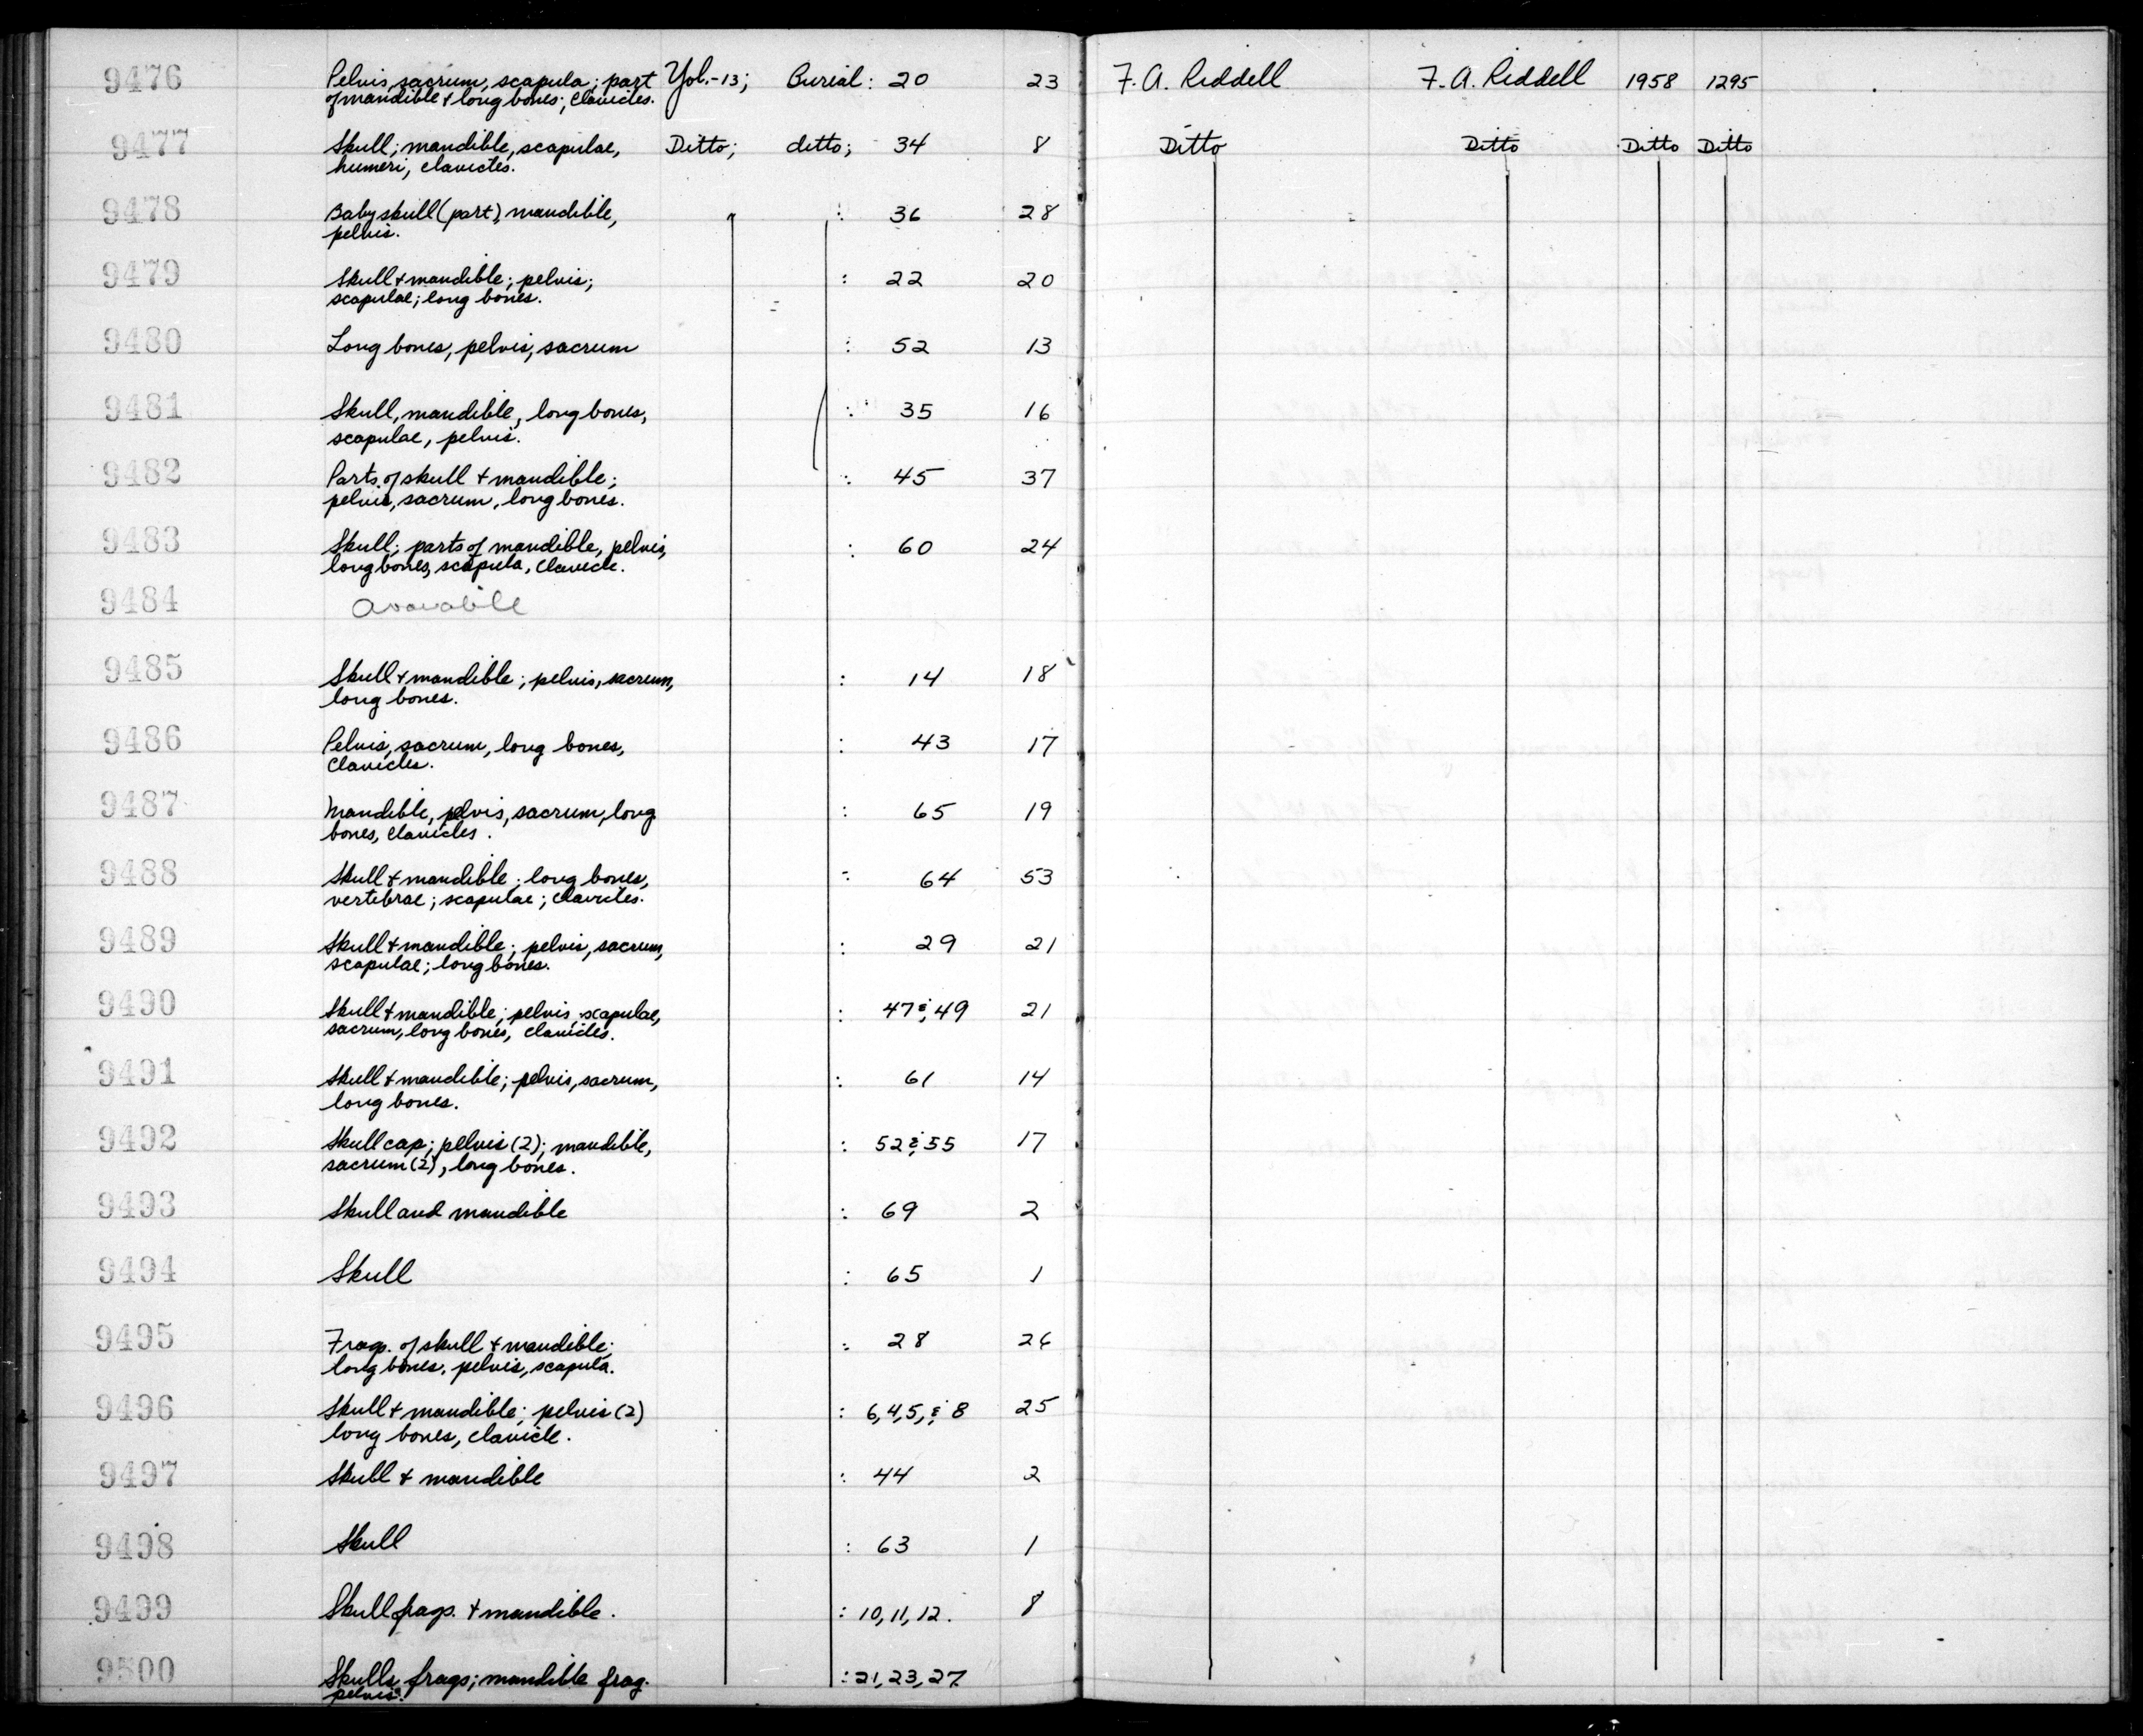 9476 Pelvis, sacrum, scapula; part Yol.-13; Burial: 20 23 F. A. Riddell F. A. Riddell 1958 1295
of mandible & long bones; clavicles.
9477 Skull; mandible, scapulae, Ditto; ditto; 34 8 Ditto Ditto Ditto Ditto
humeri, clavicles.
9478 Baby skull (part), mandible, : 36 28
pelvis.
9479 Skull & mandible; pelvis; : 22 20
scapulae; long bones.
9480 Long bones, pelvis, sacrum : 52 13
9481 Skull, mandible, long bones, : 35 16
scapulae, pelvis.
9482 Parts of skull & mandible; : 45 37
pelvis, sacrum, long bones.
9483 Skull; parts of mandible, pelvis, : 60 24
long bones, scapula, clavicle.
9484 Available
9485 Skull & mandible; pelvis, sacrum, : 14 18
long bones.
9486 Pelvis, sacrum, long bones, : 43 17
clavicles.
9487 Mandible, pelvis, sacrum, long : 65 19
bones, clavicles.
9488 Skull & mandible; long bones, : 64 53
vertebrae; scapulae; clavicles.
9489 Skull & mandible; pelvis, sacrum, : 29 21
scapulae; long bones.
9490 Skull & mandible; pelvis, scapulae, : 47 & 49 21
sacrum, long bones, clavicles.
9491 Skull & mandible; pelvis, sacrum, : 61 14
long bones.
9492 Skull cap; pelvis (2); mandible, : 52 & 55 17
sacrum (2), long bones.
9493 Skull and mandible : 69 2
9494 Skull : 65 1
9495 Frags. of skull & mandible; : 28 26
long bones, pelvis, scapula.
9496 Skull & mandible; pelvis (2) : 6, 4, 5, & 8 25
long bones, clavicle.
9497 Skull & mandible : 44 2
9498 Skull : 63 1
9499 Skull frags. & mandible. : 10, 11, 12. 8
9500 Skulls, frags; mandible frag. : 21, 23, 27.
pelvis.